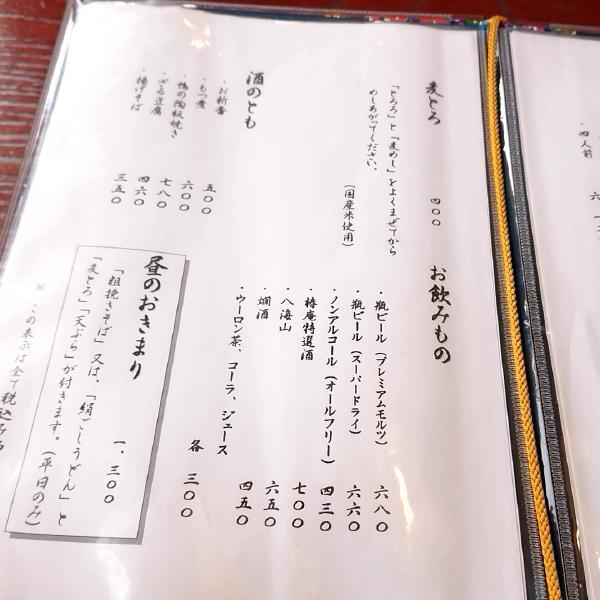 麦とろ 四〇〇
「とろろ」と「麦めし」をよくまぜてから
めしあがってください。
(国産米使用)
酒のとも
・お新香 五〇〇
・もつ煮 六〇〇
・鴨の陶板焼き 七八〇
・ざる豆腐 四六〇
・揚げそば 三五〇
お飲みもの
・瓶ビール(プレミアムモルツ) 六八〇
・瓶ビール(スーパードライ) 六六〇
・ノンアルコール(オールフリー) 四三〇
・椿庵特選酒 七〇〇
・八海山 六五〇
・燗酒 四五〇
・ウーロン茶、コーラ、ジュース
各 三〇〇
昼のおきまり 一、三〇〇
「粗挽きそば」又は、「絹ごしうどん」と
「麦とろ」「天ぷら」が付きます。(平日のみ)
※ この表示は全て税込み
・四人前